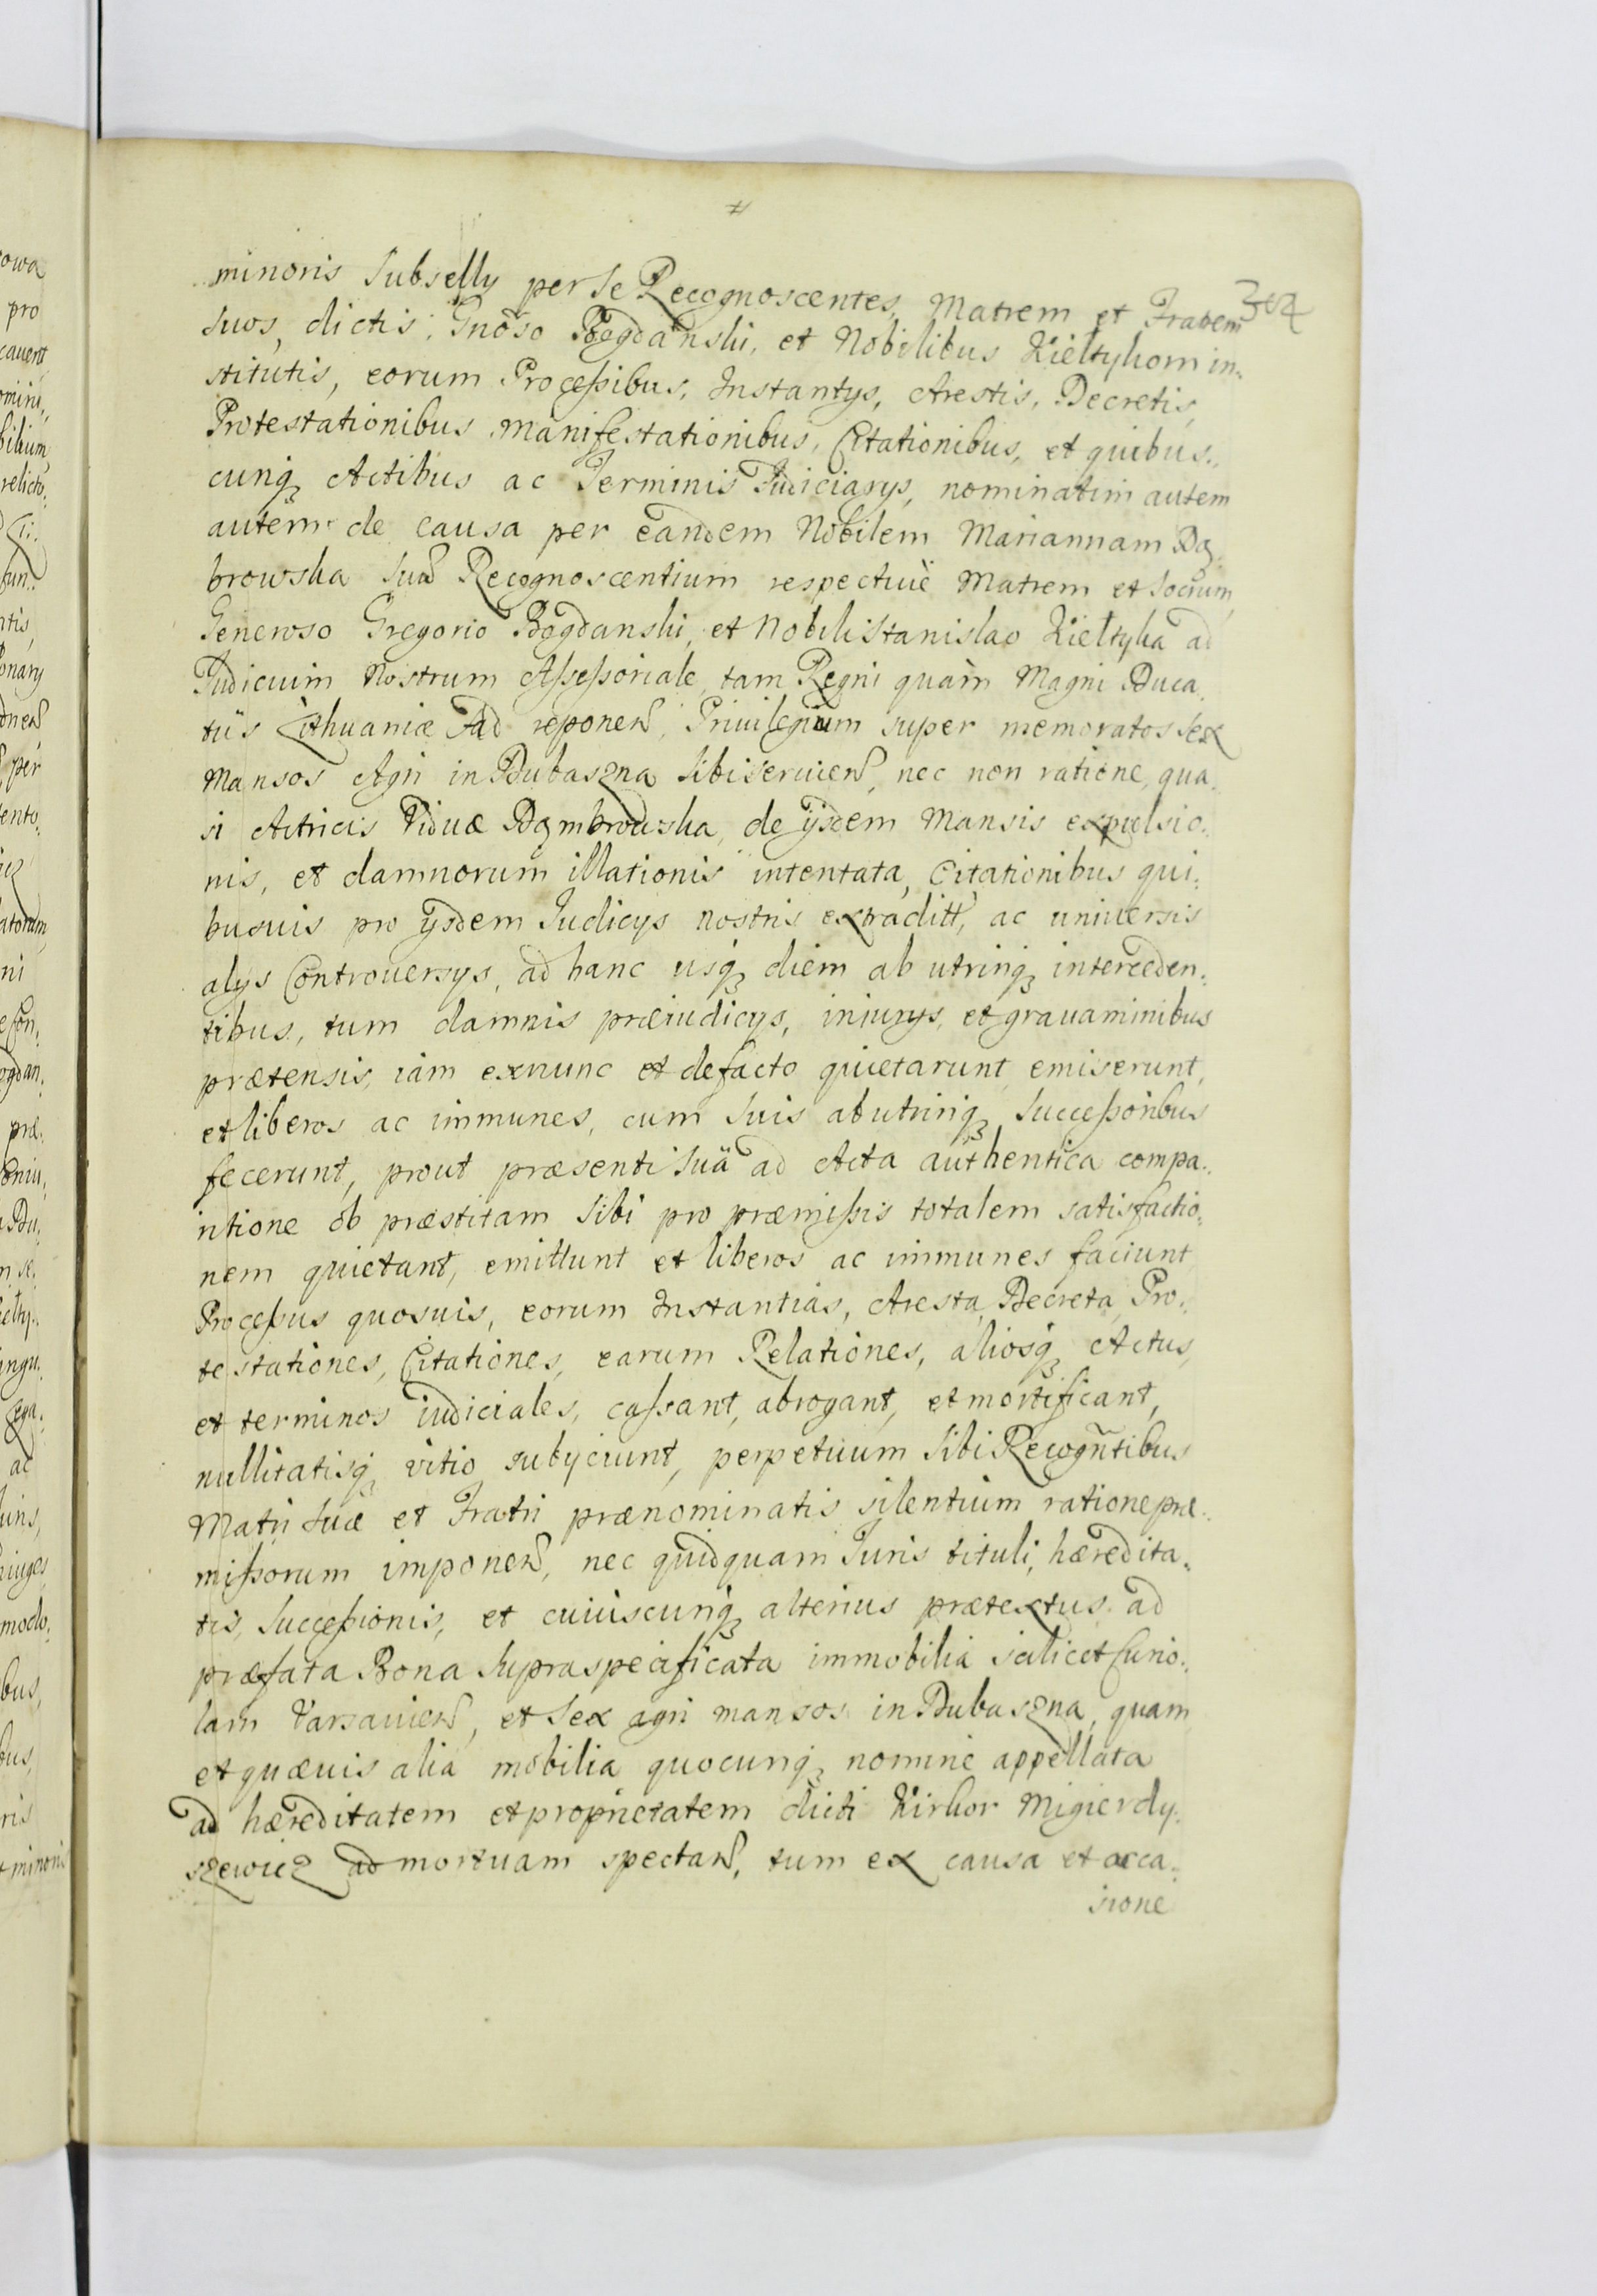 minoris Subselly per Se Recognoscentes, Matrem et Fratrem
Suos, dictis, Gnoso Bogdanski, et Nobilibus Kieltykom in-
stitutis, eorum Processibus, Instantys, Arestis, Decretis,
Protestationibus, manifestationibus, Citationibus, et quibus,,
cunq, Actibus ac Terminis Judiciarys, nominatim autem
autem de causa per eandem Nobilem Mariannam Dą,
browska Suã Recognoscentium respectivè Matrem et Socrum,
Generoso Gregorio Bogdanski, et Nobili Stanislao Kieltyka ad
Judicium Nostrum Assessoriale, tam Regni quàm Magni Duca,
tûs Lithuaniæ Ad reponen, Privilegium super memoratos Sex
Mansos Agri in Dubaszna Sibi servien, nec non ratione, qua,
si Actricis Viduæ Dąmbrowska, de ijsdem Mansis expulsio,,
nis, et damnorum illationis intentata, Citationibus qui,
busvis pro ysdem Judicys nostris extraditt, ac universis
alys Controversys, ad hanc usq, diem ab utrinq, interceden,
tibus, tum damnis præiudicys, iniurys, et gravaminibus
prætensis, iam exnunc et defacto quietarunt, emiserunt,
et liberos ac immunes, cum Suis ab utrinq, Successoribus
fecerunt, prout præsenti Suâ ad Acta authentica compa,,
ritione ob præstitam Sibi pro præmissis totalem satisfactio,
nem quietant, emittunt et liberos ac immunes faciunt,
Processus quosvis, eorum Instantias, Aresta, Decreta, Pro,
testationes, Citationes, earum Relationes, aliosq, Actus,
et terminos iudiciales, cassant, abrogant, et mortificant,
nullitatisq, vitio subyciunt, perpetuum Sibi Recogntibus
Matri Suæ et Fratri prænominatis silentium ratione præ,,
missorum imponen, nec quidquam Juris tituli, hæredita,
tis, Successionis, et cuiuscunq, alterius prætextus ad
præfata Bona Supraspecificata immobilia scilicet Curio,,
lam Varsavien, et Sex agri mansos in Dubaszna, quam
et quævis alia mobilia quocunq, nomine appellata
ad hæreditatem et proprietatem dicti Kirkor Migierdy,
szewicz ad mortuam spectan, tum ex causa et occa,
sione